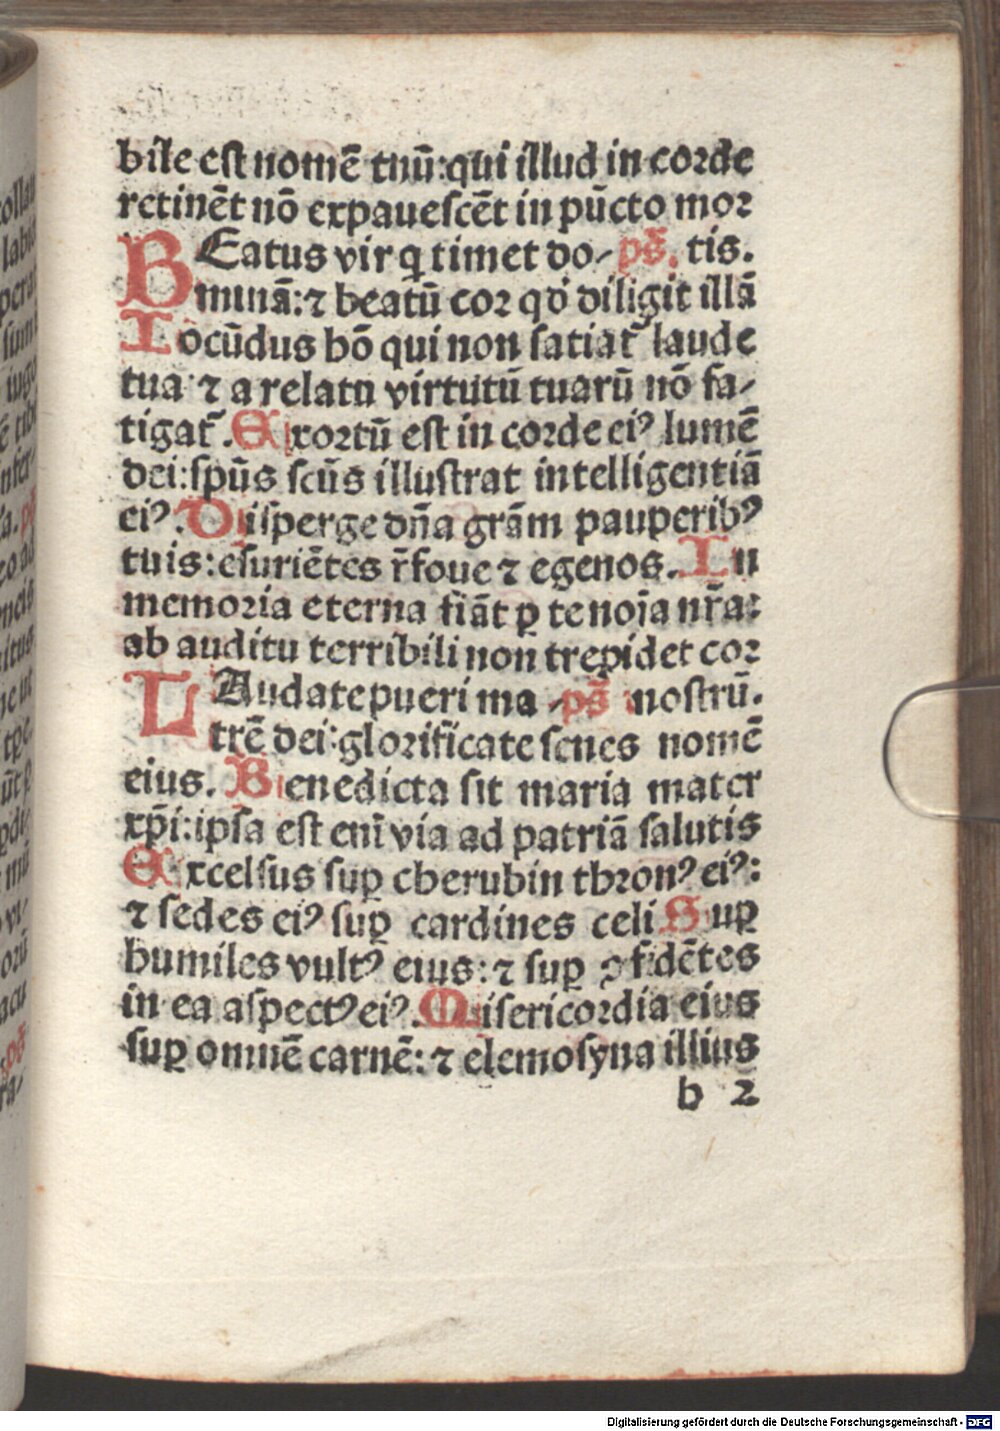 bile est nomē tuū: qui illud in corde
retinēt nō expauescēt in pūcto mor
BEatus vir q timet do- ps̄. tis.
minā: ⁊ beatū cor qď diligit illā
Iocūdus hō qui non satiat᷑ laude
tua ⁊ a relatu virtutū tuarū nō fa-
tigat᷑. Exortū est in corde eiꝰ lumē
dei: spūs scūs illustrat intelligentiā
eiꝰ. Disperge dña grām pauperibꝰ
tuis: esuriētes r̄foue ⁊ egenos. In
memoria eterna fiāt ꝑ te noīa nr̄a:
ab auditu terribili non trepidet cor
LAudate pueri ma- ps̄ nostrū.
trē dei: glorificate senes nomē
eius. Benedicta sit maria mater
xp̄i: ipsa est enī via ad patriā salutis
Excelsus suꝑ cherubin thronꝰ eiꝰ:
⁊ sedes eiꝰ suꝑ cardines celi Suꝑ
humiles vultꝰ eius: ⁊ suꝑ ꝯfidētes
in ea aspectꝰ eiꝰ. Misericordia eius
suꝑ omnē carnē: ⁊ elemosyna illius
b 2
Digitalisierung gefördert durch die Deutsche Forschungsgemeinschaft - DFG